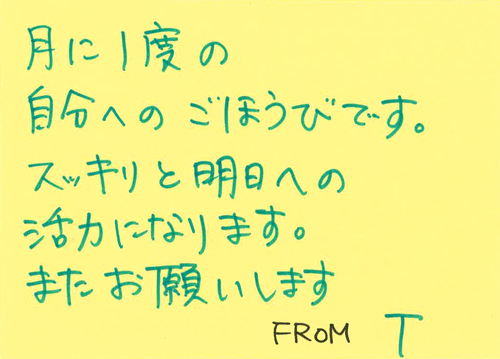 月に1度の
自分へのごほうびです。
スッキリと明日への
活力になります。
またお願いします
FROM T